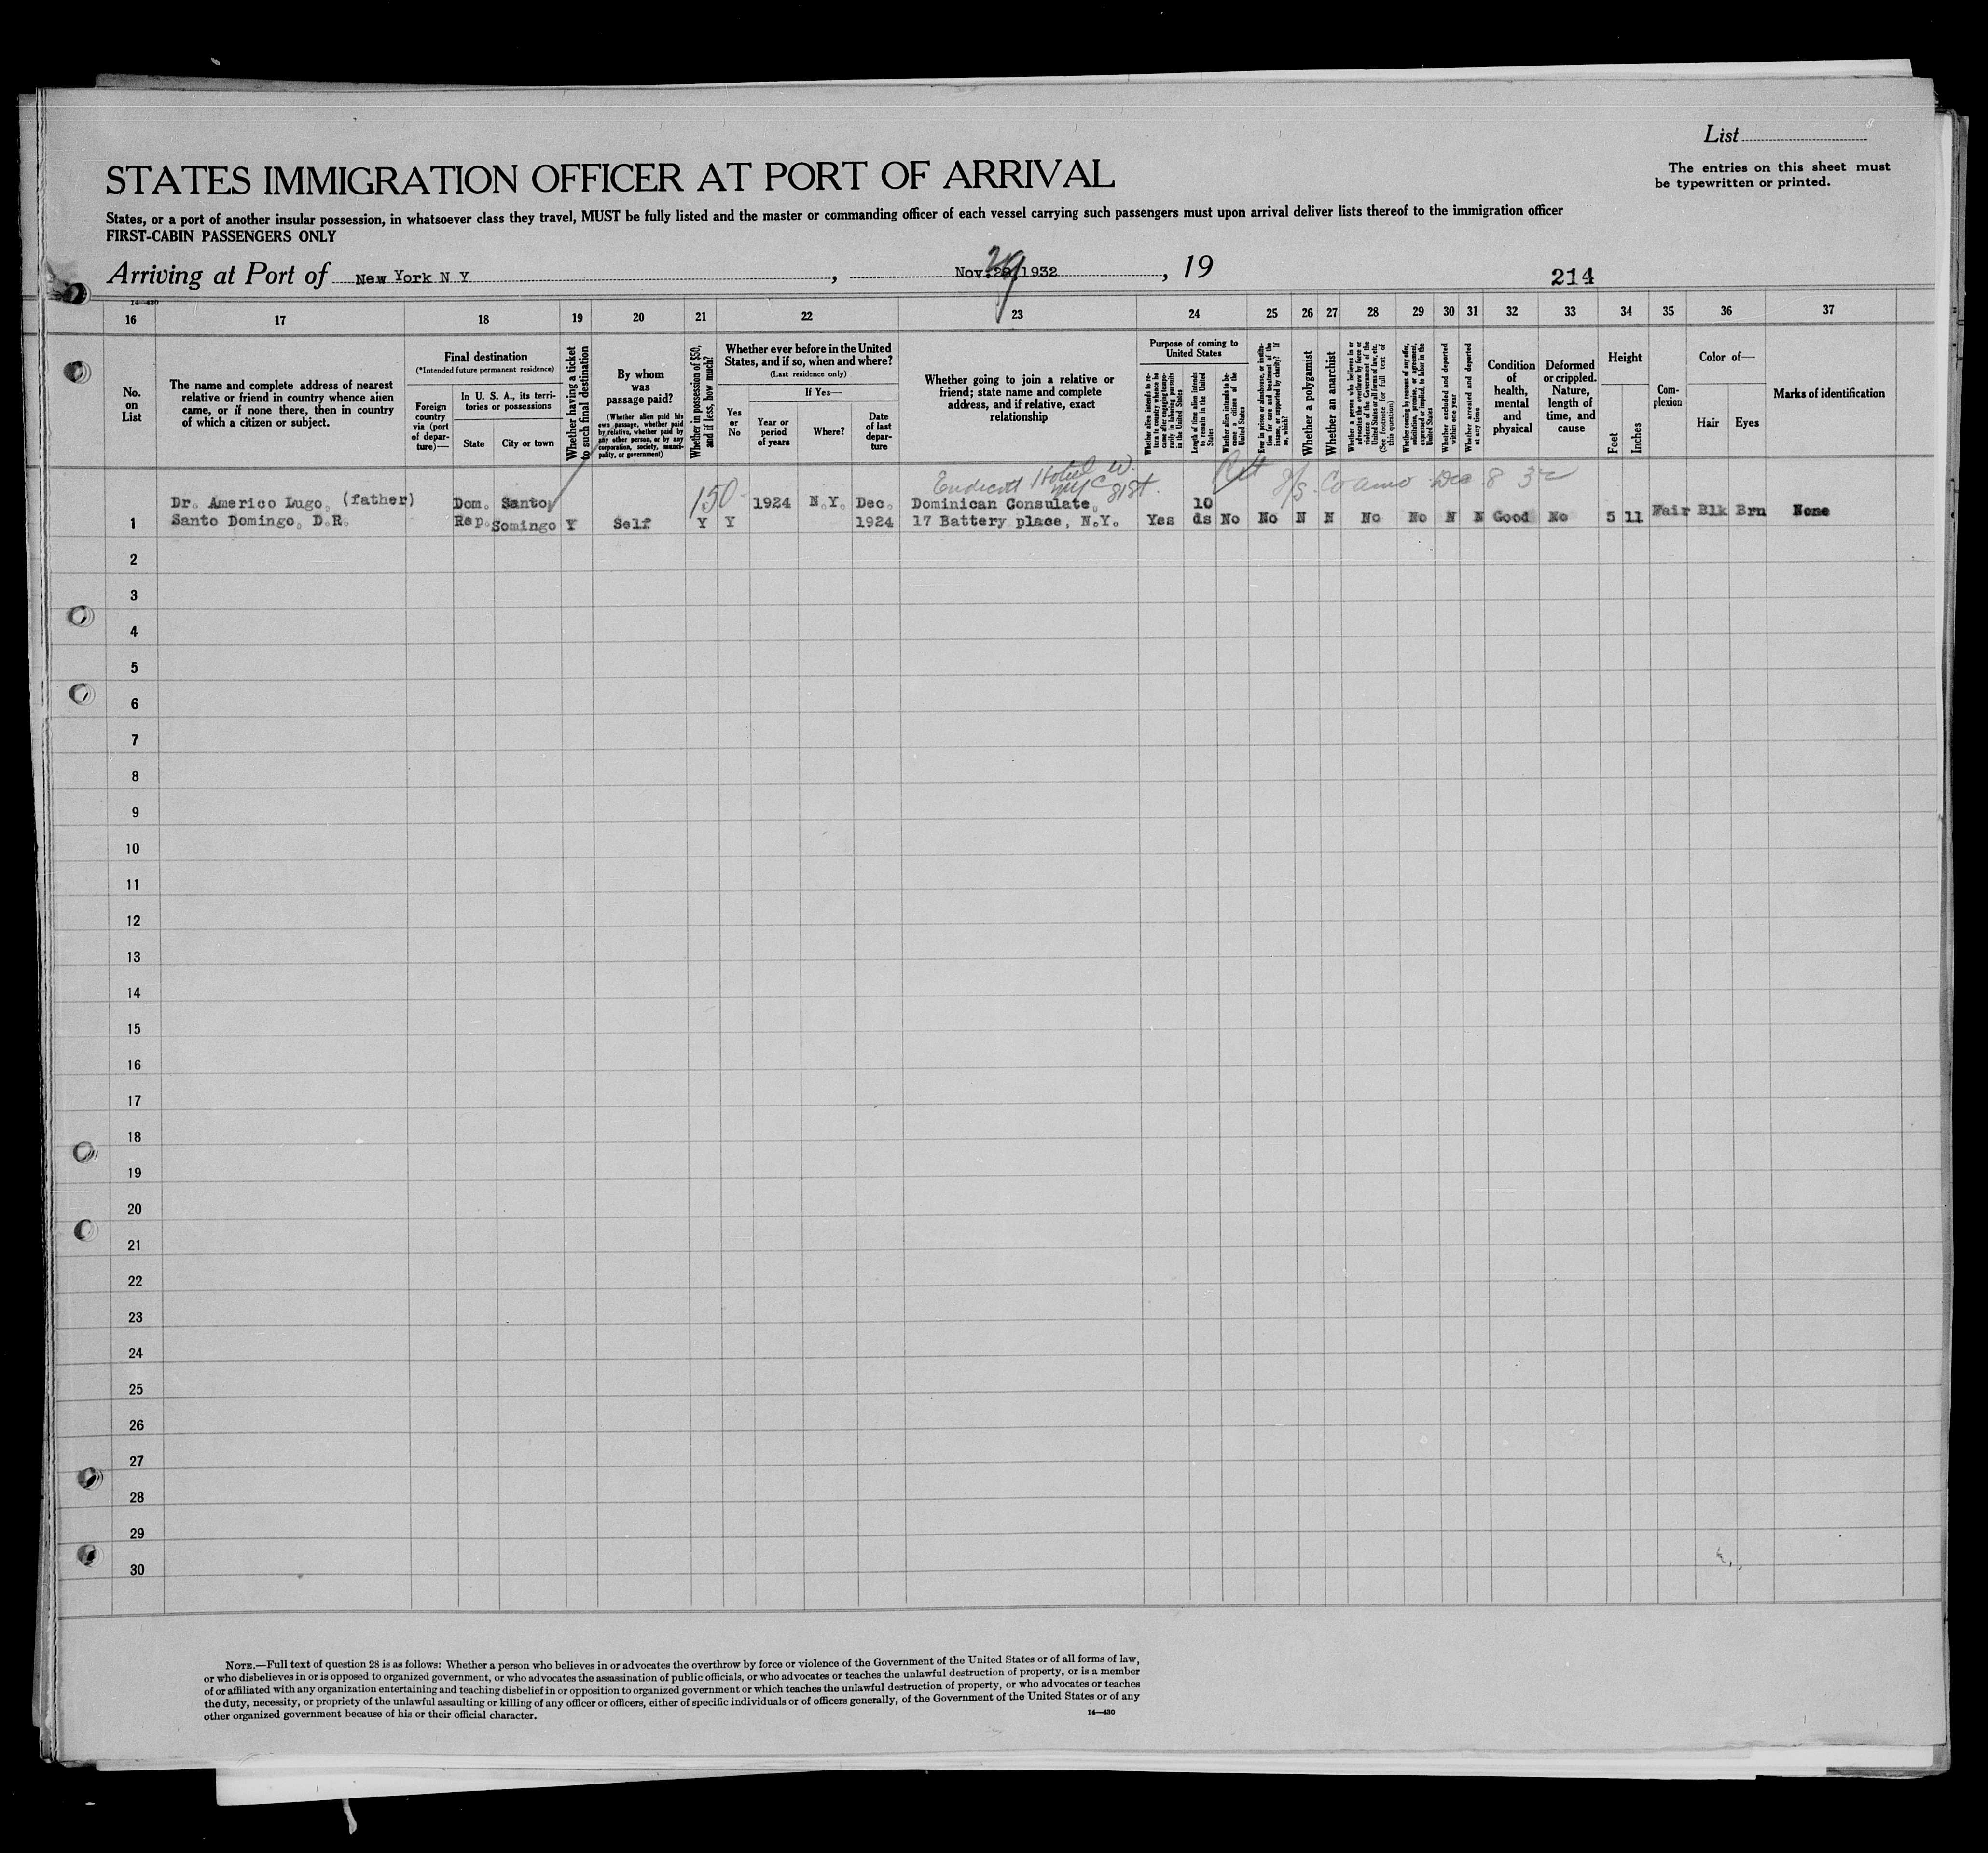 List
The entries on this sheet must
be typewritten or printed.
STATES IMMIGRATION OFFICER AT PORT OF ARRIVAL
States, or a port of another insular possession, in whatsoever class they travel, MUST be fully listed and the master or commanding officer of each vessel carrying such passengers must upon arrival deliver lists thereof to the immigration officer
FIRST-CABIN PASSENGERS ONLY
Arriving at Port of New York N Y, Nov. 29 1932, 19
214
14—430
16 17 18 19 20 21 22 23 24 25 26 27 28 29 30 31 32 33 34 35 36 37
No. on List
The name and complete address of nearest
relative or friend in country whence alien
came, or if none there, then in country
of which a citizen or subject.
Final destination
(*Intended future permanent residence)
Foreign country via (port of departure)—
In U. S. A., its territories or possessions
State
City or town
Whether having a ticket to such final destination
By whom was passage paid?
(Whether alien paid his own passage, whether paid by relative, whether paid by any other person, or by any corporation, society, municipality, or government)
Whether in possession of $50, and if less, how much?
Whether ever before in the United
States, and if so, when and where?
(Last residence only)
Yes or No
If Yes—
Year or period of years
Where?
Date of last departure
Whether going to join a relative or
friend; state name and complete
address, and if relative, exact
relationship
Purpose of coming to United States
Whether alien intends to return to country whence he came after engaging temporarily in laboring pursuits in the United States
Length of time alien intends to remain in the United States
Whether alien intends to become a citizen of the United States
Ever in prison or almshouse, or institution for care and treatment of the insane, or supported by charity? If so, which?
Whether a polygamist
Whether an anarchist
Whether a person who believes in or advocates the overthrow by force or violence of the Government of the United States or all forms of law, etc. (See footnote for full text of this question)
Whether coming by reasons of any offer, solicitation, promise, or agreement, expressed or implied, to labor in the United States
Whether excluded and deported within one year
Whether arrested and deported at any time
Condition of health, mental and physical
Deformed or crippled. Nature, length of time, and cause
Height
Feet
Inches
Complexion
Color of—
Hair
Eyes
Marks of identification
Endicott Hotel W. 81 St. NYC
S/S. Coamo Dec 8 32
Dr. Americo Lugo, (father) Dom. Santo 150 1924 N.Y. Dec. Dominican Consulate, 10
1 Santo Domingo, D.R. Rep. Somingo Y Self Y Y 1924 17 Battery place, N.Y. Yes ds No No N N No No N N Good No 5 11 Fair Blk Brn None
2
3
4
5
6
7
8
9
10
11
12
13
14
15
16
17
18
19
20
21
22
23
24
25
26
27
28
29
30
NOTE.—Full text of question 28 is as follows: Whether a person who believes in or advocates the overthrow by force or violence of the Government of the United States or of all forms of law,
or who disbelieves in or is opposed to organized government, or who advocates the assassination of public officials, or who advocates or teaches the unlawful destruction of property, or is a member
of or affiliated with any organization entertaining and teaching disbelief in or opposition to organized government or which teaches the unlawful destruction of property, or who advocates or teaches
the duty, necessity, or propriety of the unlawful assaulting or killing of any officer or officers, either of specific individuals or of officers generally, of the Government of the United States or of any
other organized government because of his or their official character.
14—430